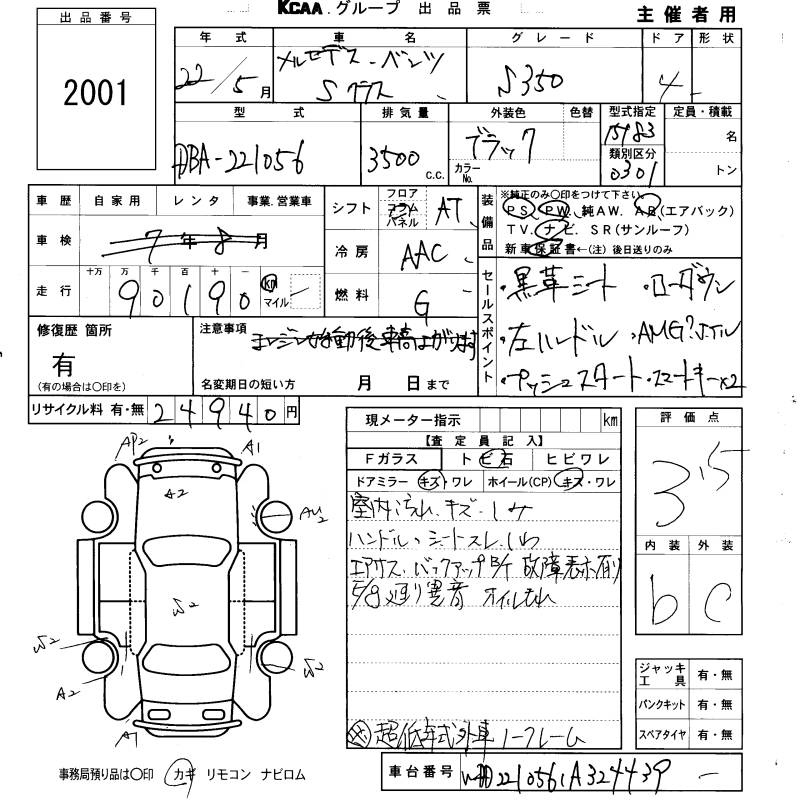 KCAA.グループ 出品票
主催者用
出品番号
2001
年式 車名 グレード ドア 形状
22/5月 メルセデス・ベンツ Sクラス S350 4 -
型式 排気量 外装色 色替 型式指定 定員・積載
DBA-221056 3500 C.C. ブラック カラーNo. 15983 名
類別区分 0301 トン
車歴 自家用 レンタ 事業.営業車
車検 7年8月
走行 十万 万 千 百 十 一
90190 km マイル
シフト フロア コラム パネル AT
冷房 AAC
燃料 G
装備品 ※純正のみ〇印をつけて下さい。
PS、PW、純AW. AB(エアバック)
TV. ナビ. SR(サンルーフ)
新車保証書←(注) 後日送りのみ
セールスポイント
・黒革シート ・ローダウン
・左ハンドル ・AMG
・プッシュスタート・スマートキー×2
修復歴 箇所
有
(有の場合は〇印を)
注意事項
エンジン始動後車高上がります
名変期日の短い方 月 日まで
リサイクル料 有・無 24940円
現メーター指示 km
【査定員記入】
Fガラス トビ石 ヒビワレ
ドアミラー キズ・ワレ ホイール(CP) キズ・ワレ
室内汚れ、キズ・シミ
ハンドル・シートスレ、シワ
エアサス、バックアップB/T 故障表示有り
E/g廻り異音 オイルもれ
超低年式外車 ノークレーム
評価点
3.5
内装 外装
b C
ジャッキ工具 有・無
パンクキット 有・無
スペアタイヤ 有・無
AP2 A1
A2
AU2
W2
W2 W2
A2
A1
事務局預り品は〇印 カギ リモコン ナビロム
車台番号 WDD2210561A324439 -